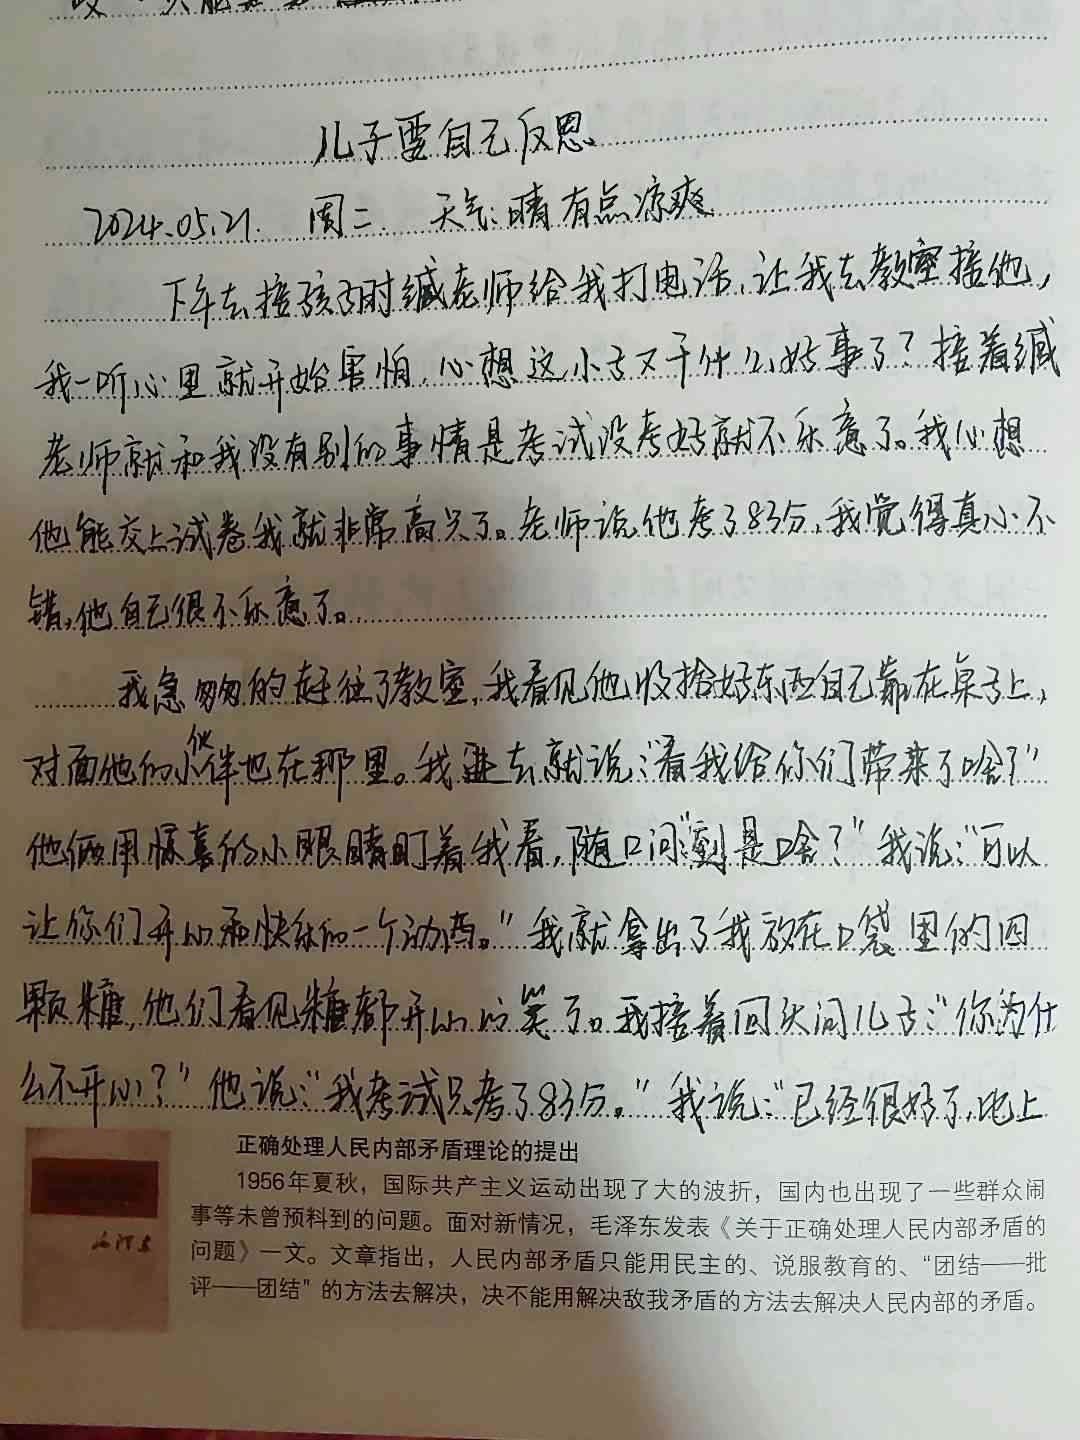 儿子要自己反思
2024.05.21. 周二. 天气:晴 有点凉爽
下午去接孩子时臧老师给我打电话,让我去教室接他,
我一听心里就开始害怕,心想这小子又干什么好事了?接着臧
老师就和我没有别的事情是考试没考好就不乐意了。我心想
他能交上试卷我就非常高兴了。老师说他考了83分,我觉得真心不
错,他自己很不乐意了。
我急匆匆的赶往了教室,我看见他收拾好东西自己靠在桌子上,
对面他的小伙伴也在那里。我进去就说:“看我给你们带来了啥?”
他俩用惊喜的小眼睛盯着我看,随口问“到是啥?”我说:“可以
让你们开心和快乐的一个东西。”我就拿出了我放在口袋里的四
颗糖,他们看见糖都开心的笑了。我接着回头问儿子:“你为什
么不开心?”他说:“我考试只考了83分。”我说:“已经很好了,比上
正确处理人民内部矛盾理论的提出
1956年夏秋,国际共产主义运动出现了大的波折,国内也出现了一些群众闹
事等未曾预料到的问题。面对新情况,毛泽东发表《关于正确处理人民内部矛盾的
问题》一文。文章指出,人民内部矛盾只能用民主的、说服教育的、“团结——批
评——团结”的方法去解决,决不能用解决敌我矛盾的方法去解决人民内部的矛盾。